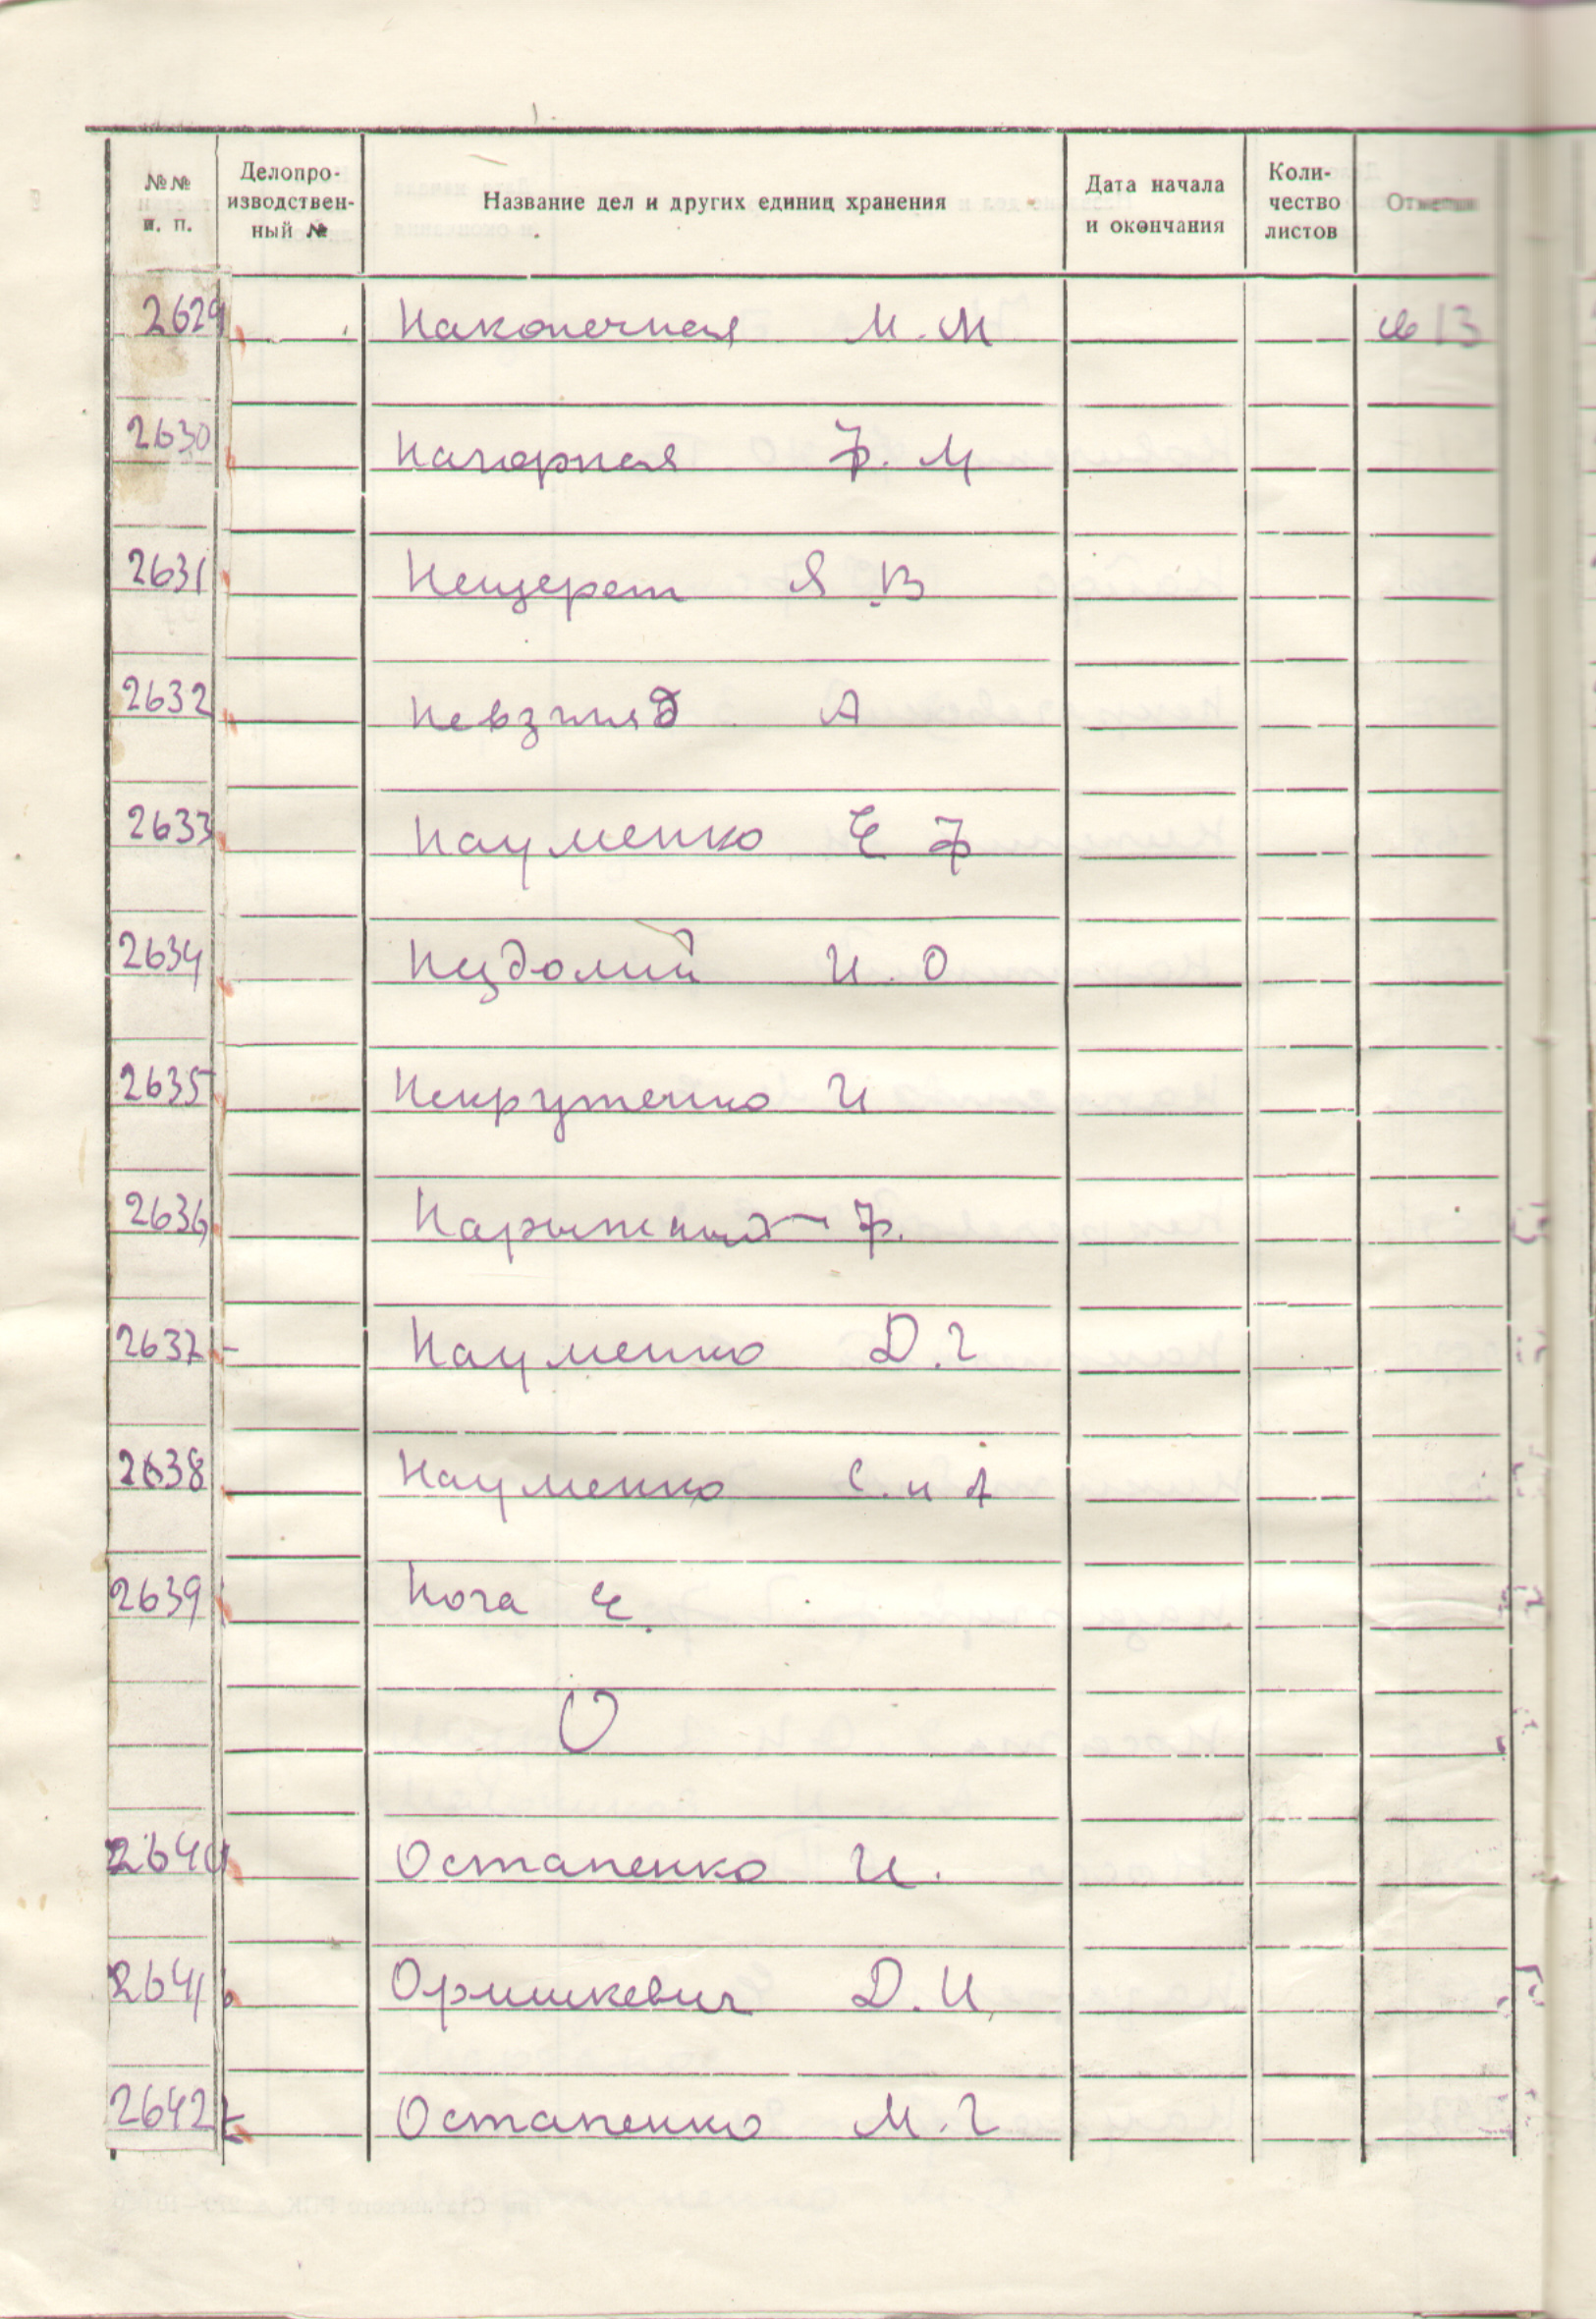 №№ п. п. Делопро-изводствен-ный № Название дел и других единиц хранения Дата начала и окончания Коли-чество листов Отметки
2629 Наконечная М. М
2630 Нагорная Ф. М
2631 Нещерет Я. В
2632 Невзгляд А
2633 Науменко Е Ф
2634 Нездолий И. О
2635 Некрутенко И
2636 Нарыжний Ф.
2637 Науменко Д. Г
2638 Науменко С. и А
2639 Нога Е.
О
2640 Остапенко И.
2641 Оришкевич Д. И.
2642 Остапенко М. Г